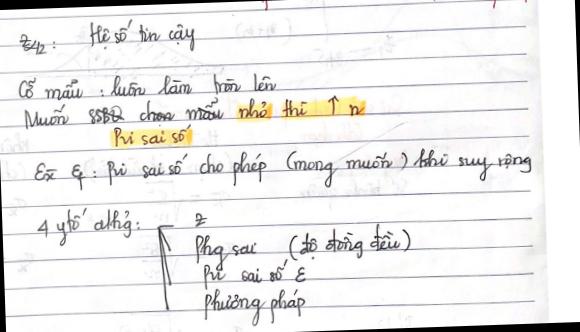 Zα/2: Hệ số tin cậy
Cỡ mẫu: luôn làm tròn lên
Muốn SSBQ chọn mẫu nhỏ thì ↑ n
Pvi sai số
εx̄ εf: Pvi sai số cho phép (mong muốn) khi suy rộng
4 ytố ảhg̉: z
Phg sai (độ đồng đều)
Pvi sai số ε
Phương pháp